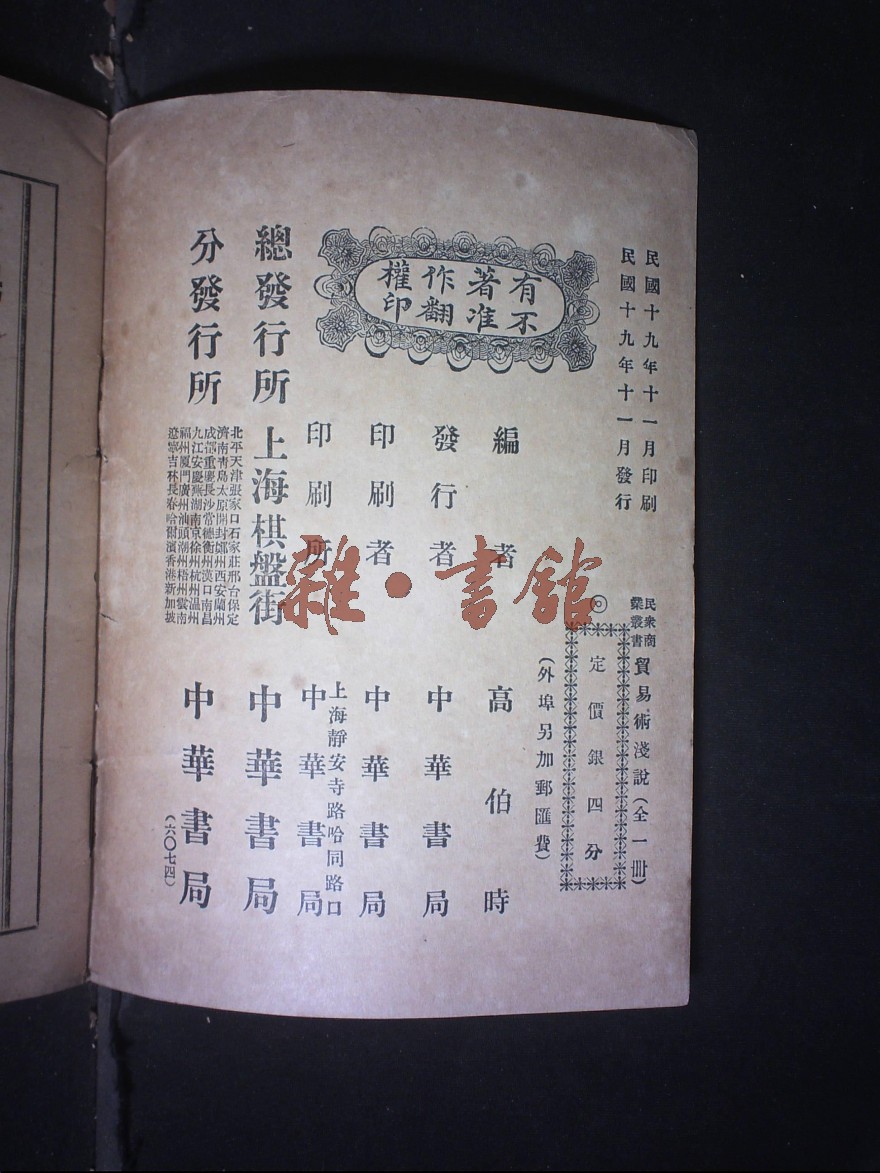 民國十九年十一月印刷
民國十九年十一月發行
有著作權
不准翻印
民衆商業叢書
貿易術淺說(全一冊)
◎定價銀四分
(外埠另加郵匯費)
編者 高伯時
發行者 中華書局
印刷者 中華書局
印刷所 上海靜安寺路哈同路口 中華書局
總發行所 上海棋盤街 中華書局
分發行所
北平天津張家口石家莊邢台保定
濟南靑島太原開封鄭州西安蘭州
成都重慶長沙常德衡州漢口南昌
九江安慶蕪湖南京徐州杭州溫州
福州厦門廣州汕頭潮州梧州雲南
遼寧吉林長春哈爾濱香港新加坡
中華書局
(六〇七四)
雜·書館